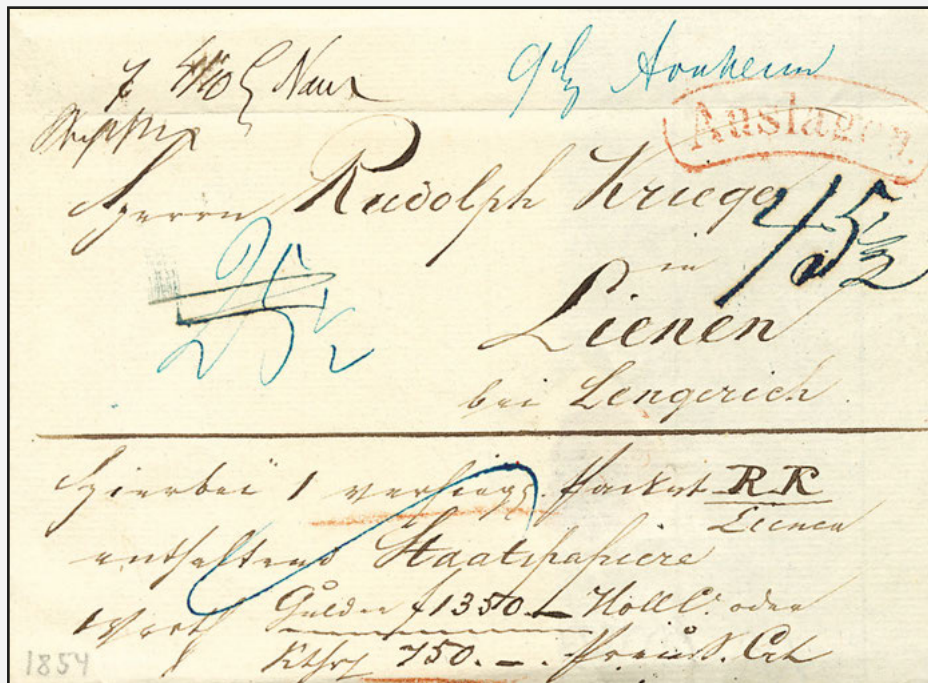 Arnheim
Auslagen.
Herrn Rudolph Kriege
45 1/2
in
25 1/2
Lienen
bei Lengerich.
Hierbei 1 versiegt. Packet RK
Lienen
enthaltend Staatspapiere
Werth Gulden f 1350.— Holl Ct. oder
Rthlr 750.—. Preuß. Crt
1854